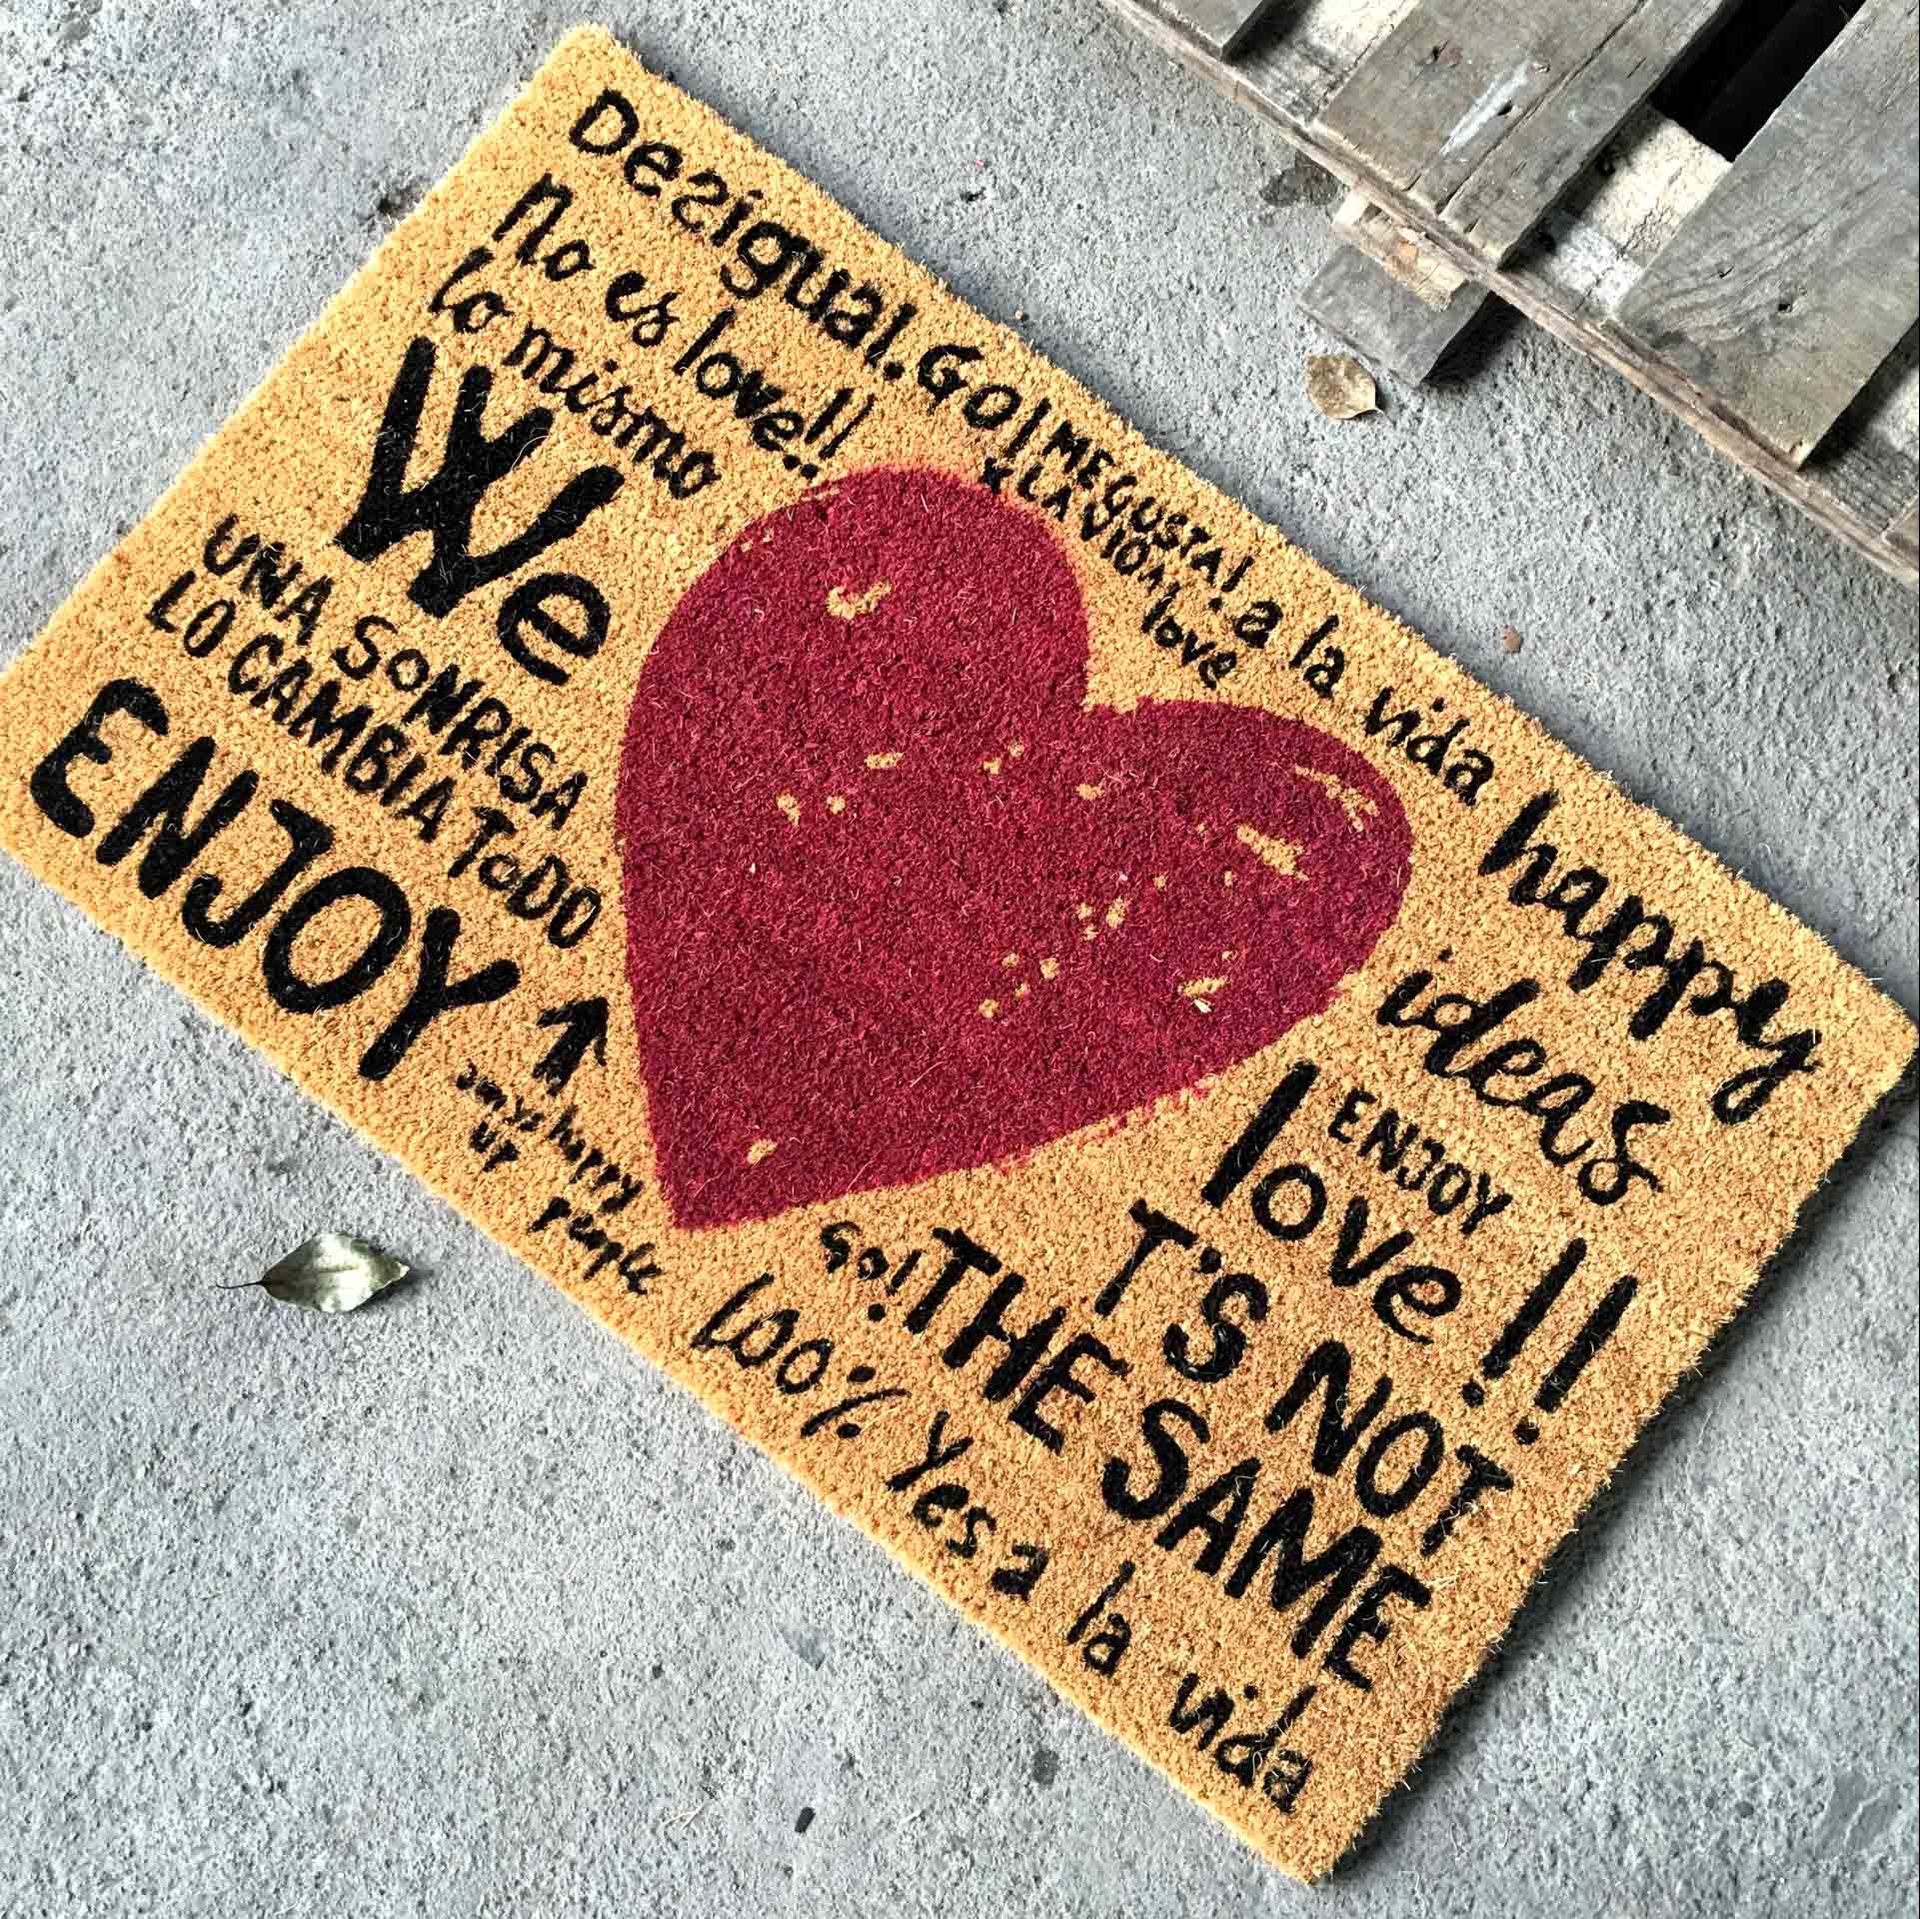 Desigual. GO! ME GUSTA! a la vida
X LA
love
no es love!!
lo mismo
We
UNA SONRISA
LO CAMBIA TODO
ENJOY
happy
UP
people
happy
ideas
ENJOY
love!!
T'S NOT
GO! THE SAME
100% Yes a la vida